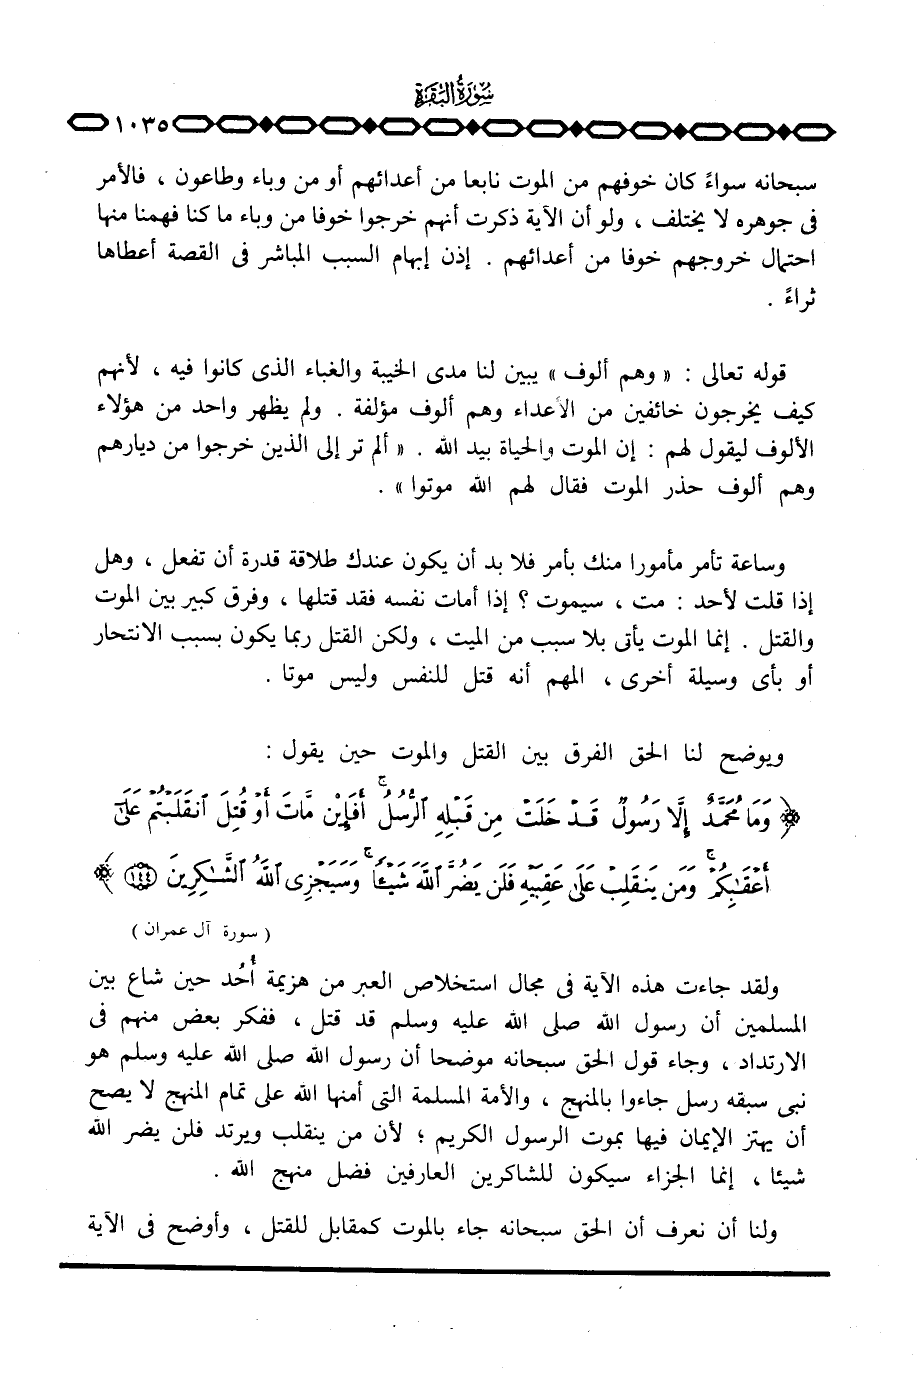 سورة البقرة
١٠٣٥
سبحانه سواءً كان خوفهم من الموت نابعا من أعدائهم أو من وباء وطاعون ، فالأمر
فى جوهره لا يختلف ، ولو أن الآية ذكرت أنهم خرجوا خوفا من وباء ما كنا فهمنا منها
احتمال خروجهم خوفا من أعدائهم . إذن إبهام السبب المباشر فى القصة أعطاها
ثراءً .
قوله تعالى : « وهم ألوف » يبين لنا مدى الخيبة والغباء الذى كانوا فيه ، لأنهم
كيف يخرجون خائفين من الأعداء وهم ألوف مؤلفة . ولم يظهر واحد من هؤلاء
الألوف ليقول لهم : إن الموت والحياة بيد الله . « ألم تر إلى الذين خرجوا من ديارهم
وهم ألوف حذر الموت فقال لهم الله موتوا » .
وساعة تأمر مأمورا منك بأمر فلا بد أن يكون عندك طلاقة قدرة أن تفعل ، وهل
إذا قلت لأحد : مت ، سيموت ؟ إذا أمات نفسه فقد قتلها ، وفرق كبير بين الموت
والقتل . إنما الموت يأتى بلا سبب من الميت ، ولكن القتل ربما يكون بسبب الانتحار
أو بأى وسيلة أخرى ، المهم أنه قتل للنفس وليس موتا .
ويوضح لنا الحق الفرق بين القتل والموت حين يقول :
﴿ وَمَا مُحَمَّدٌ إِلَّا رَسُولٌ قَدْ خَلَتْ مِن قَبْلِهِ ٱلرُّسُلُ ۚ أَفَإِيْن مَّاتَ أَوْ قُتِلَ ٱنقَلَبْتُمْ عَلَىٰٓ
أَعْقَـٰبِكُمْ ۚ وَمَن يَنقَلِبْ عَلَىٰ عَقِبَيْهِ فَلَن يَضُرَّ ٱللَّهَ شَيْـًٔا ۚ وَسَيَجْزِى ٱللَّهُ ٱلشَّـٰكِرِينَ ﴿١٤٤﴾ ﴾
( سورة آل عمران )
ولقد جاءت هذه الآية فى مجال استخلاص العبر من هزيمة أُحُد حين شاع بين
المسلمين أن رسول الله صلى الله عليه وسلم قد قتل ، ففكر بعض منهم فى
الارتداد ، وجاء قول الحق سبحانه موضحا أن رسول الله صلى الله عليه وسلم هو
نبى سبقه رسل جاءوا بالمنهج ، والأمة المسلمة التى أمنها الله على تمام المنهج لا يصح
أن يهتز الإيمان فيها بموت الرسول الكريم ؛ لأن من ينقلب ويرتد فلن يضر الله
شيئا ، إنما الجزاء سيكون للشاكرين العارفين فضل منهج الله .
ولنا أن نعرف أن الحق سبحانه جاء بالموت كمقابل للقتل ، وأوضح فى الآية